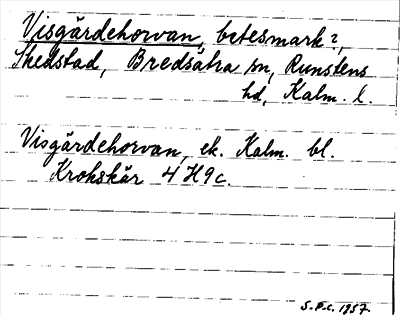 Visgärdehorvan, betesmark?,
Skedstad, Bredsätra sn, Runstens
hd, Kalm. l.
Visgärdehorvan, ek. Kalm. bl.
Krokskär 4 H 9 c.
S.F.C. 1957